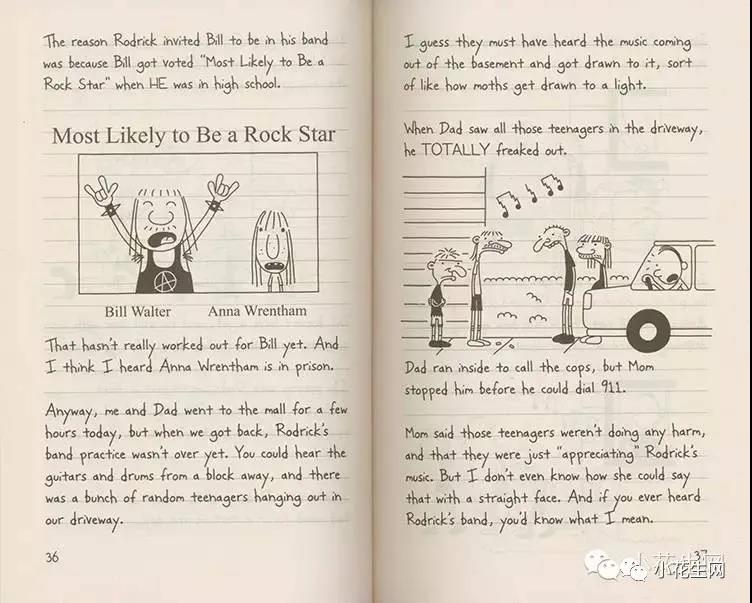 The reason Rodrick invited Bill to be in his band
was because Bill got voted "Most Likely to Be a
Rock Star" when HE was in high school.
Most Likely to Be a Rock Star
Bill Walter Anna Wrentham
That hasn't really worked out for Bill yet. And
I think I heard Anna Wrentham is in prison.
Anyway, me and Dad went to the mall for a few
hours today, but when we got back, Rodrick's
band practice wasn't over yet. You could hear the
guitars and drums from a block away, and there
was a bunch of random teenagers hanging out in
our driveway.
36
I guess they must have heard the music coming
out of the basement and got drawn to it, sort
of like how moths get drawn to a light.
When Dad saw all those teenagers in the driveway,
he TOTALLY freaked out.
Dad ran inside to call the cops, but Mom
stopped him before he could dial 911.
Mom said those teenagers weren't doing any harm,
and that they were just "appreciating" Rodrick's
music. But I don't even know how she could say
that with a straight face. And if you ever heard
Rodrick's band, you'd know what I mean.
37
小花生网
小花生网